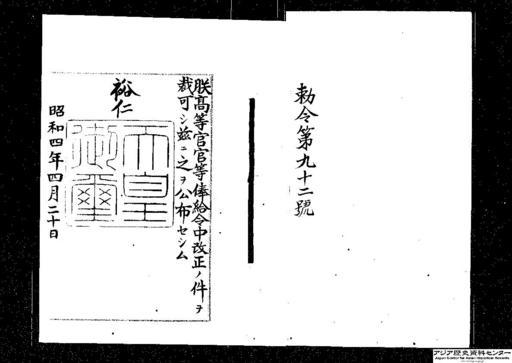 勅令第九十二號
朕高等官官等俸給令中改正ノ件ヲ
裁可シ茲ニ之ヲ公布セシム
裕仁
天皇御璽
昭和四年四月二十日
アジア歴史資料センター
Japan Center for Asian Historical Records